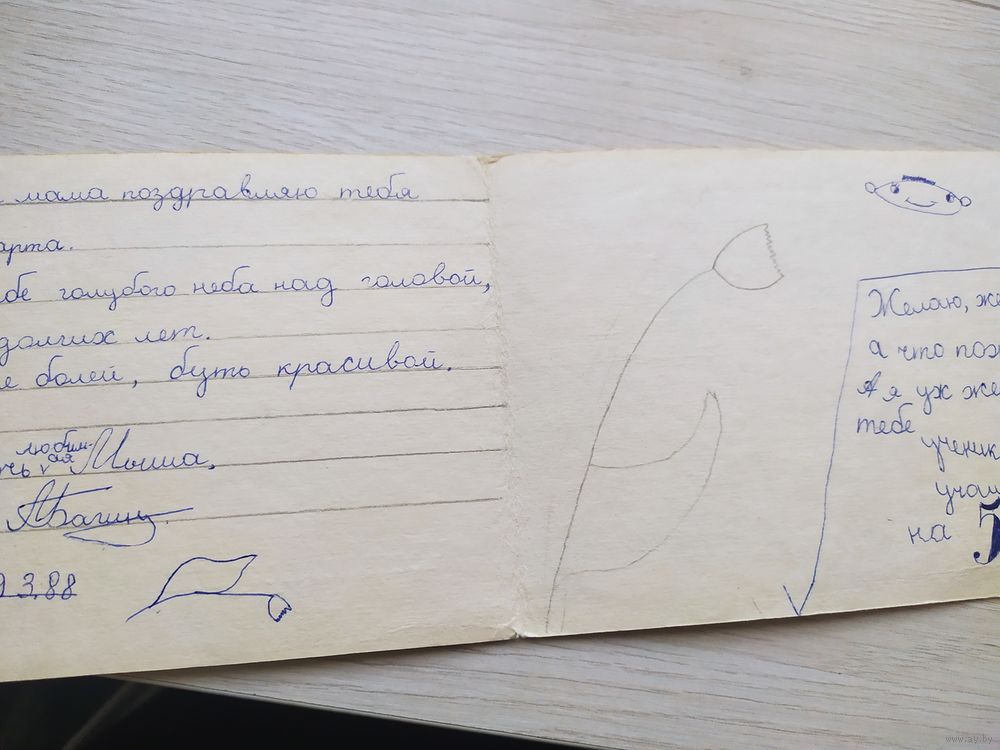 мама поздравляю тебя
арта.
бе голубого неба над головой,
долгих лет.
е болей, буть красивой.
любим-
ая
чь Моша,
3.88
Желаю, же
а что пож
А я уж же
тебе
ученик
учащ
на 5
www.ay.by